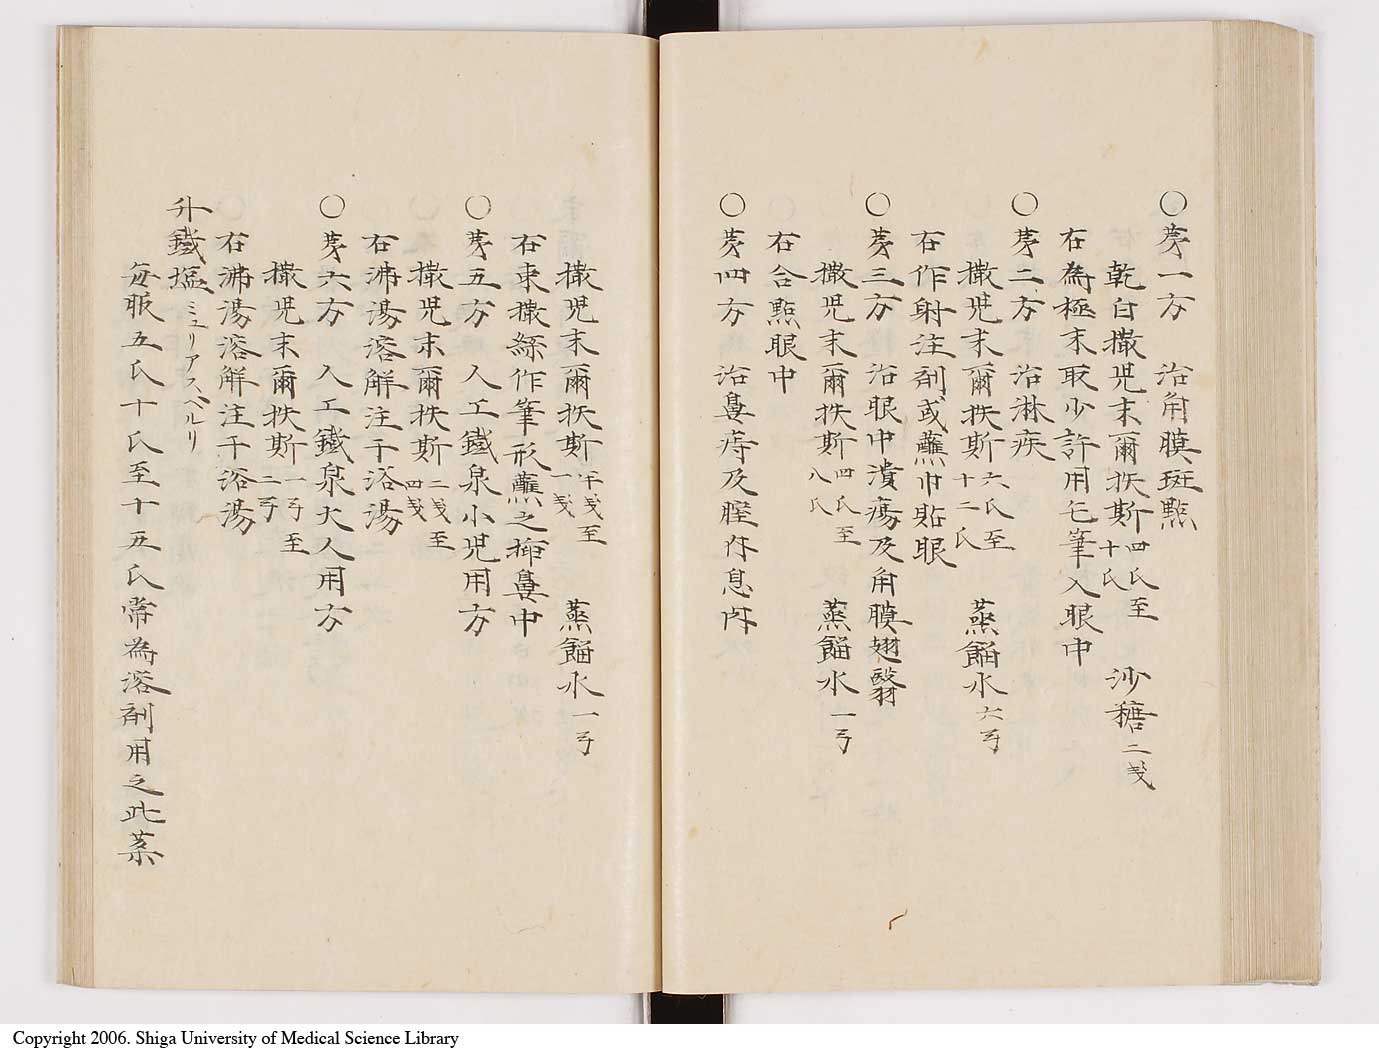 〇苐一方　治角膜斑點
乾白撒児末爾扶斯 四氏至十氏　沙糖 二戔
右為極末取少許用毛筆入眼中
〇苐二方　治淋疾
撒児末爾扶斯 六氏至十二氏　蒸餾水 六弓
右作射注剤或蘸巾貼眼
〇苐三方　治眼中潰瘍及角膜翅翳
撒児末爾扶斯 四氏至八氏　蒸餾水 一弓
右合點眼中
〇苐四方　治鼻痔及腟 息肉
撒児末爾扶斯 半戔至一戔　蒸餾水 一弓
右束撒綵作筆形蘸之挿鼻中
〇苐五方　人工鐵泉小児用方
撒児末爾扶斯 二戔至四戔
右沸湯溶解注于浴湯
〇苐六方　人工鐵泉大人用方
撒児末爾扶斯 一弓至二弓
右沸湯溶解注于浴湯
升鐵塩 ミュリアスペルリ
毎服五氏十氏至十五氏常為溶剤用之此薬
Copyright 2006. Shiga University of Medical Science Library